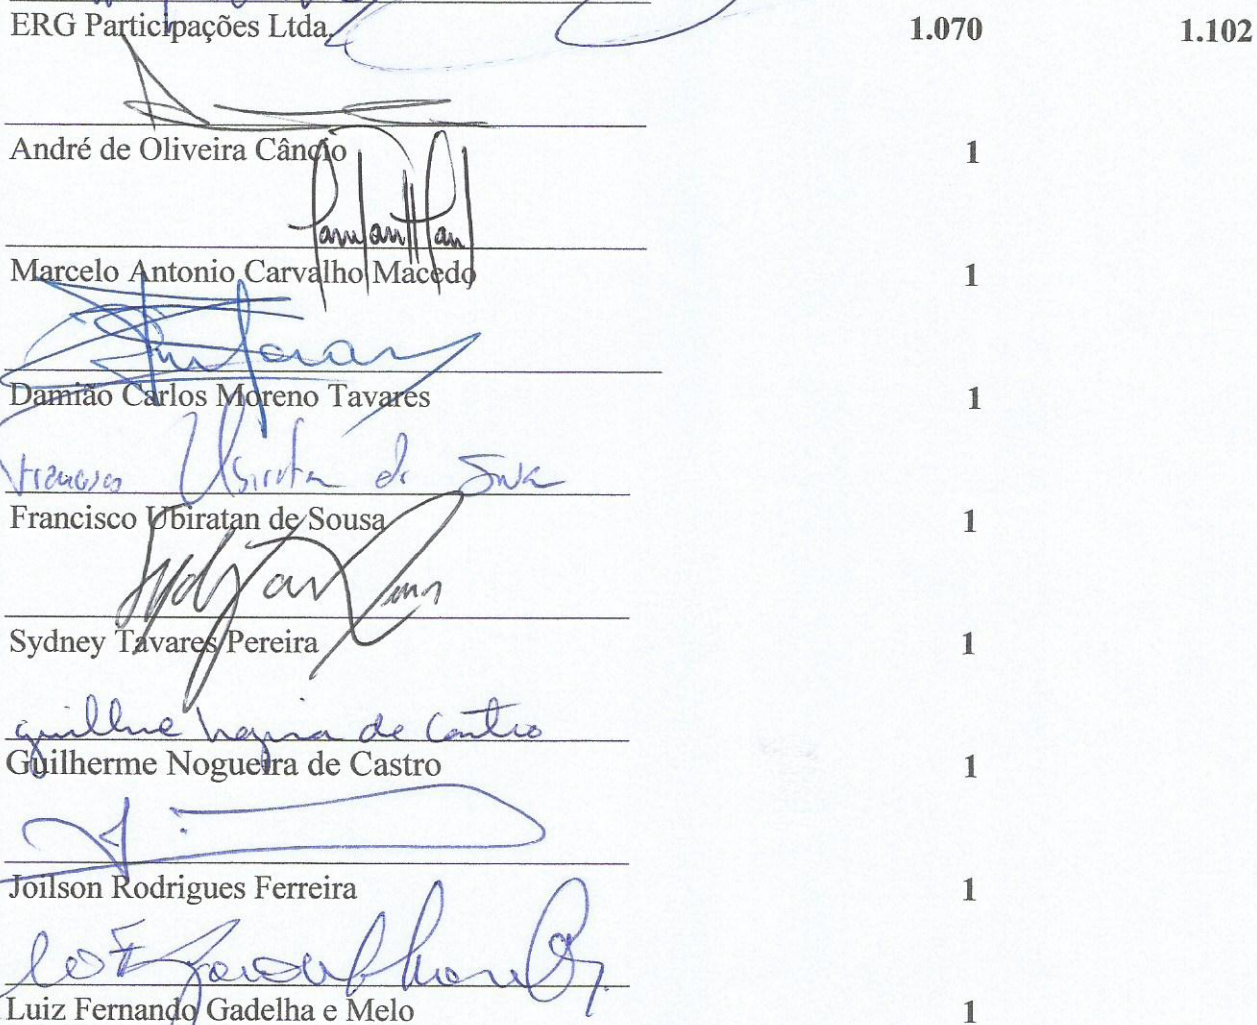 ERG Participações Ltda. 1.070 1.102
André de Oliveira Câncio 1
Marcelo Antonio Carvalho Macedo 1
Damião Carlos Moreno Tavares 1
Francisco Ubiratan de Sousa 1
Sydney Tavares Pereira 1
guilherme Nogueira de Castro
Guilherme Nogueira de Castro 1
Joilson Rodrigues Ferreira 1
Luiz Fernando Gadelha e Melo 1